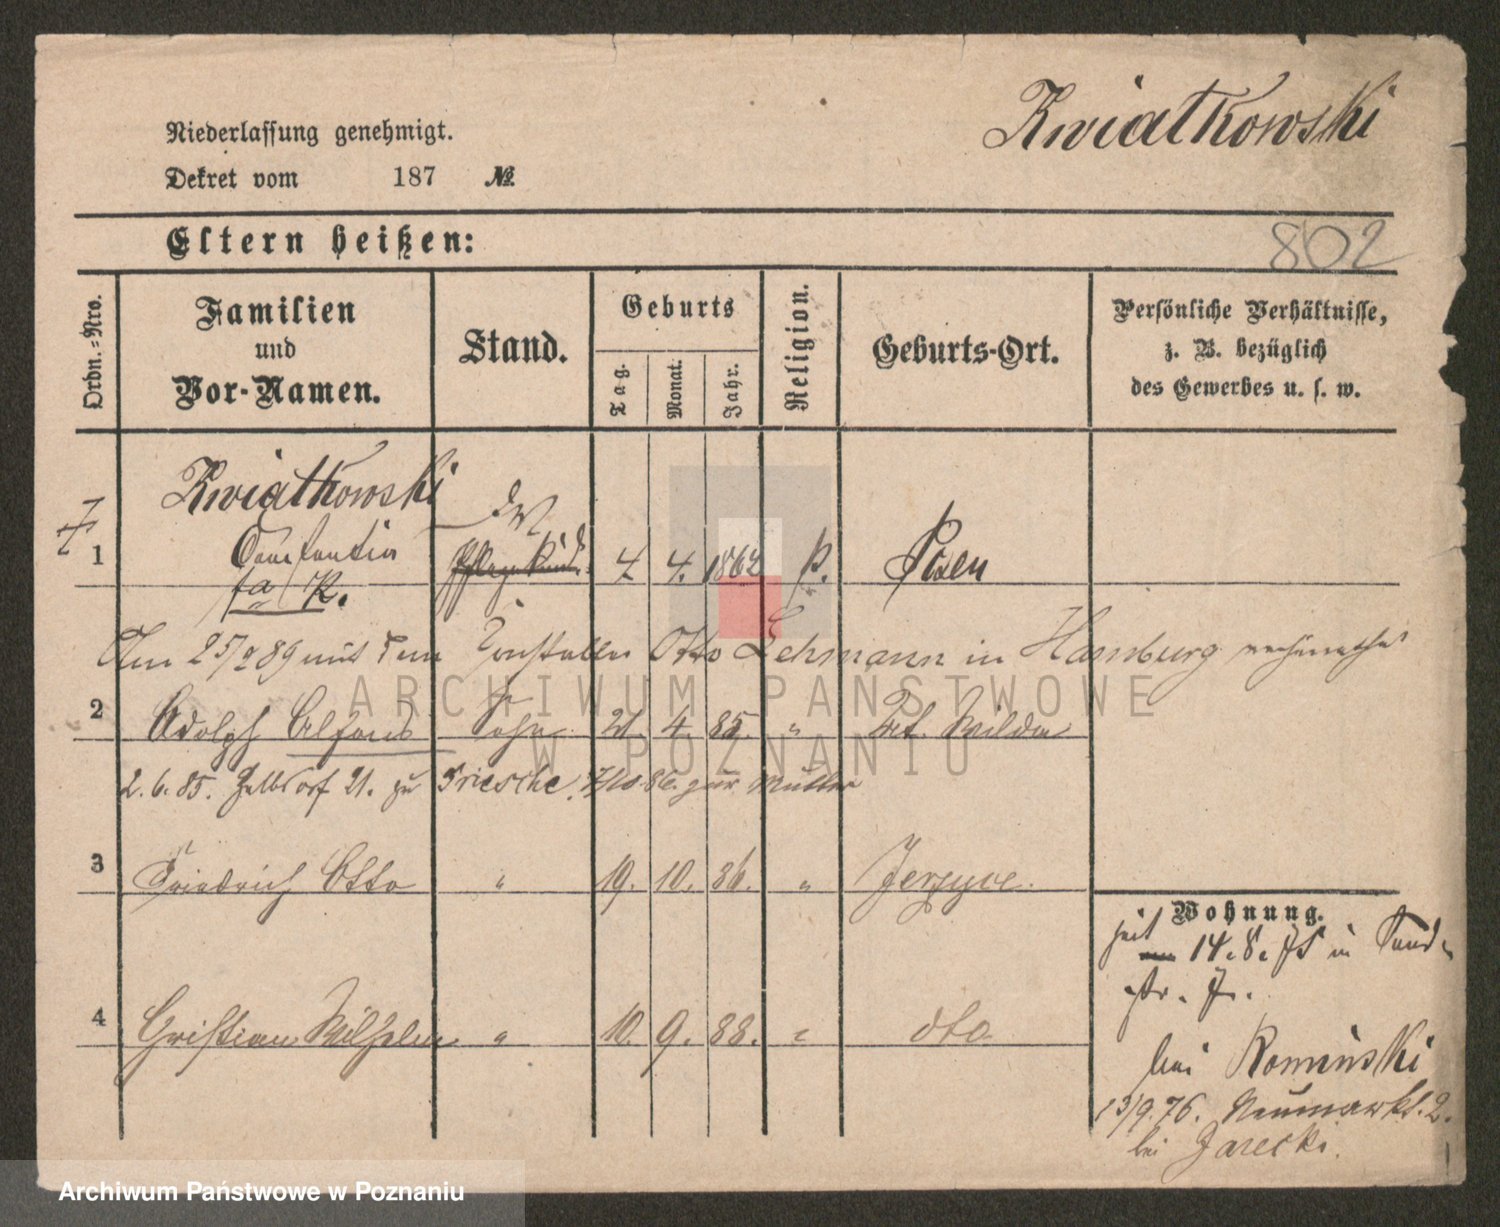 Kwiatkowski
Niederlassung genehmigt.
Dekret vom 187 №
Eltern heißen:
802
Ordn.=Nro.
Familien
und
Vor-Namen.
Stand.
Geburts
Tag.
Monat.
Jahr.
Religion.
Geburts-Ort.
Persönliche Verhältnisse,
z. B. bezüglich
des Gewerbes u. s. w.
Kwiatkowski
1 Constantia Pflegekind 4. 1862 p. Posen
Am 25/2 89 mit dem Otto Lehmann in Hamburg
2 Adolph Alfons Sohn 21. 4. 85. " Wilda
2. 6. 85. 21. zu Triesche. 86. zur Mutter
3 Friedrich Otto " 19. 10. 86. " Jersyce.
4 Christian Wilhelm " 10. 9. 88. " dto
Wohnung.
seit 14. 8. 75 in Sand-
str. 7.
bei Rominski
13/9. 76. Neumarkt. 2.
bei Jarecki.
ARCHIWUM PAŃSTWOWE
W POZNANIU
Archiwum Państwowe w Poznaniu